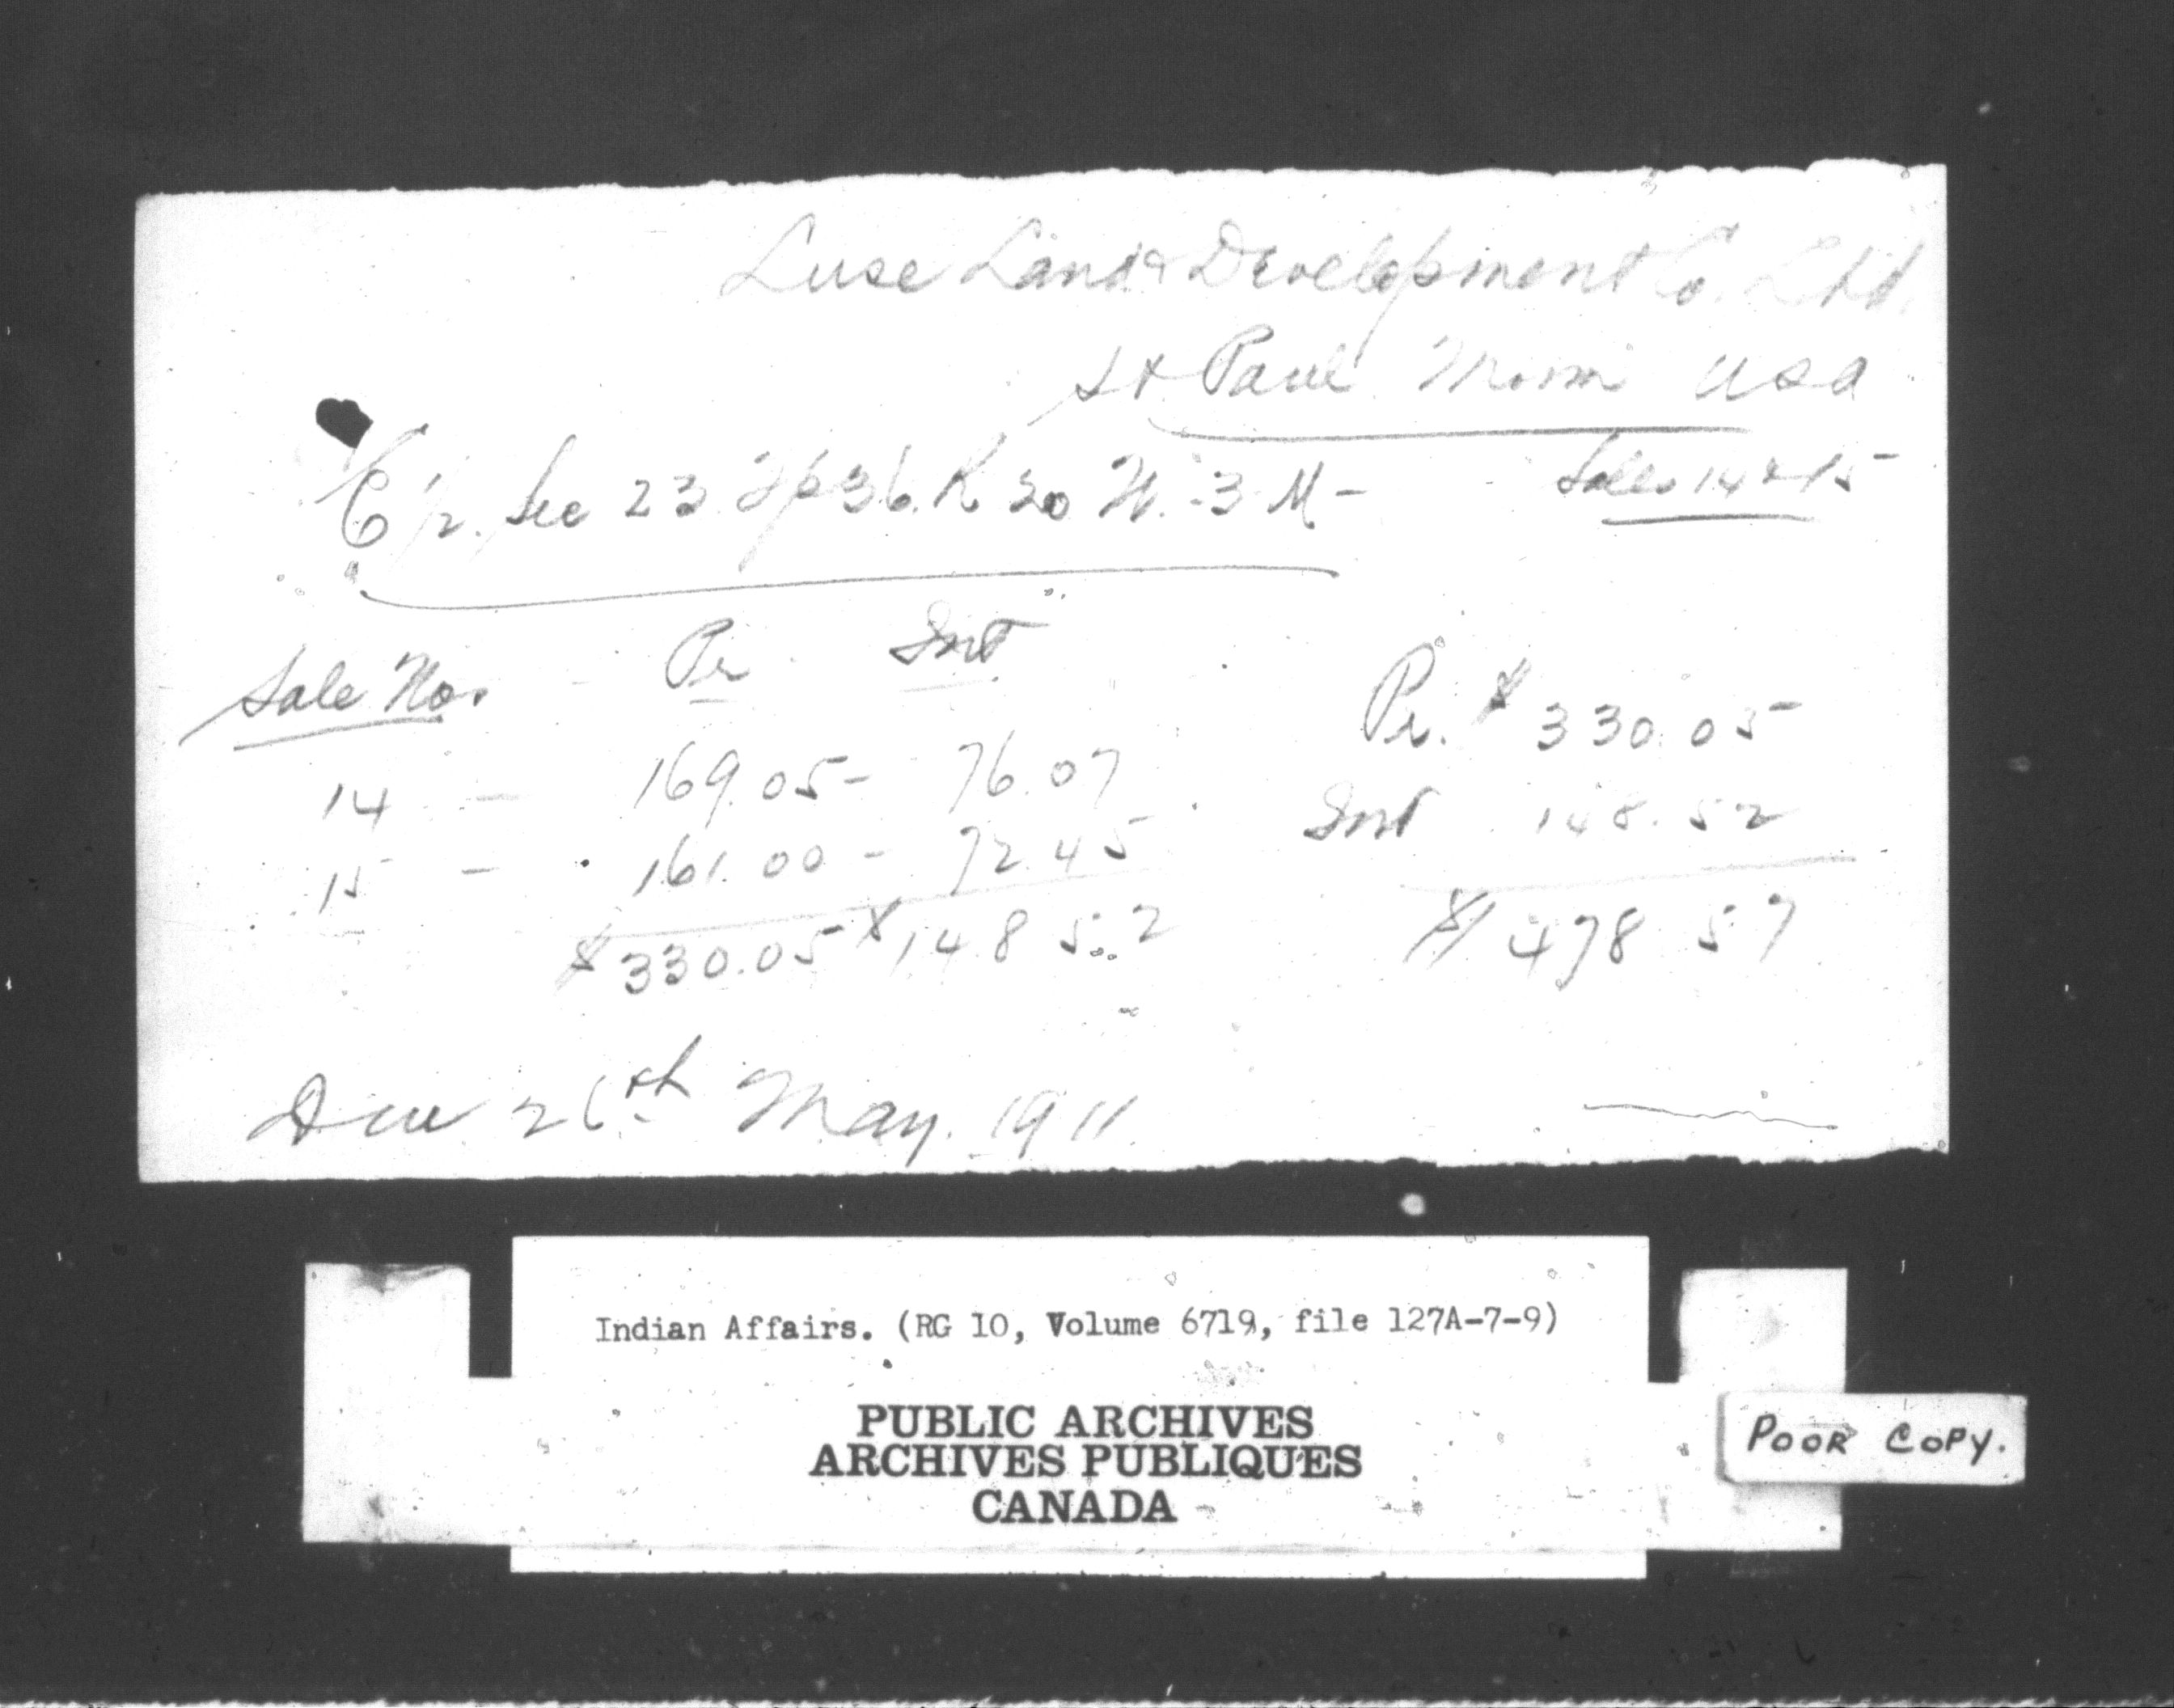 Luse Land & Development Co. Ltd.
St Paul Minn USA
Sales 14 & 15
E 1/2. Sec 23 Tp 36. R 20 W. 3 M -
Sale Nos. - Pr. Int
14 - 169.05 - 76.07
15 - 161.00 - 72.45
$330.05 $148.52
Pr. $330.05
Int 148.52
$478.57
Due 26th May. 1911.
Indian Affairs. (RG 10, Volume 6719, file 127A-7-9)
PUBLIC ARCHIVES
ARCHIVES PUBLIQUES
CANADA
POOR COPY.